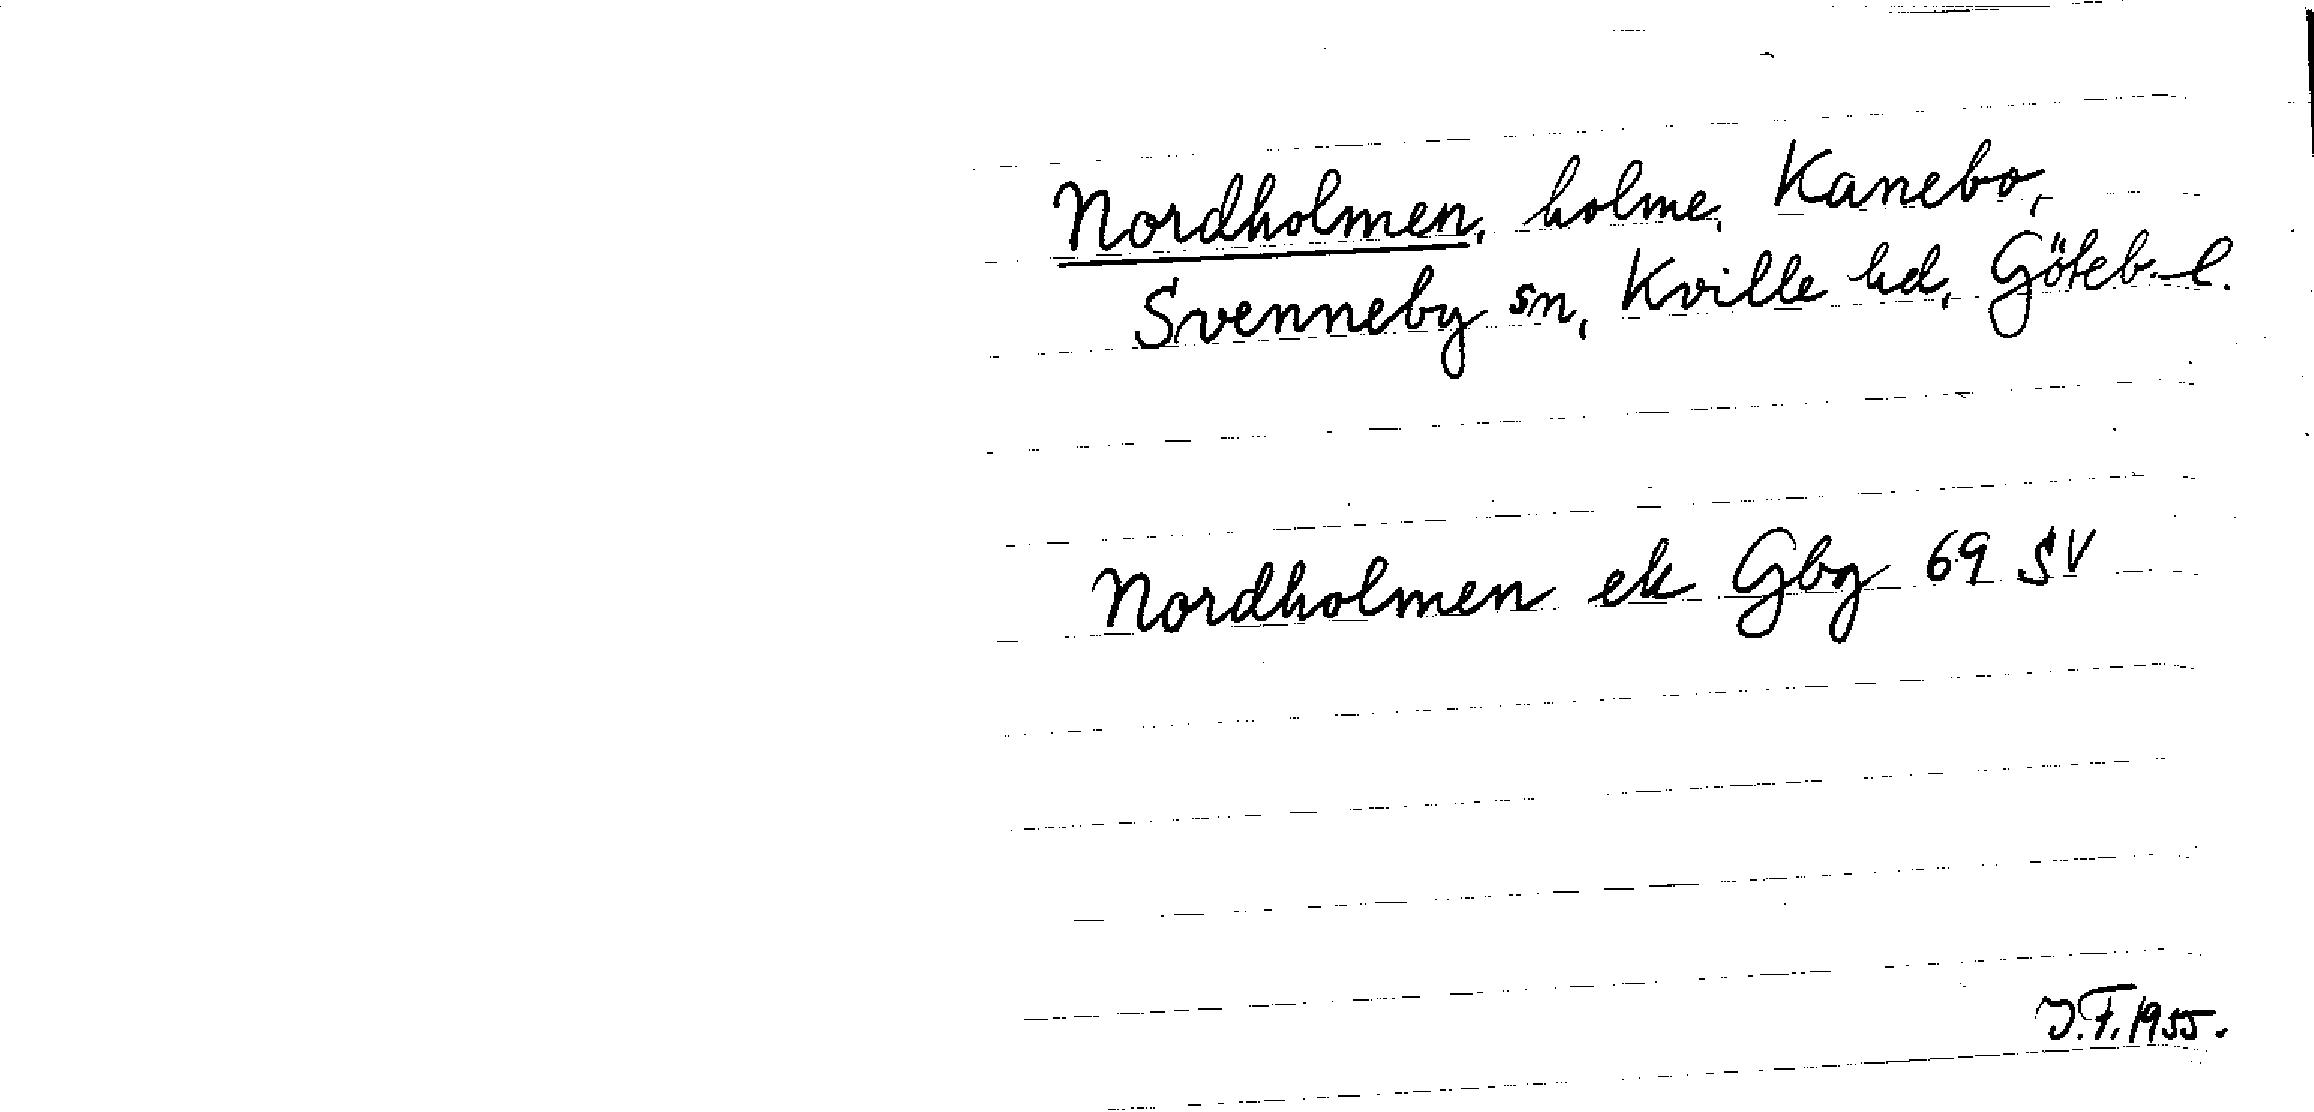 Nordholmen, holme, Kanebo,
Svenneby sn, Kville hd, Göteb. l.
Nordholmen ek Gbg 69 SV
J.F. 1955.